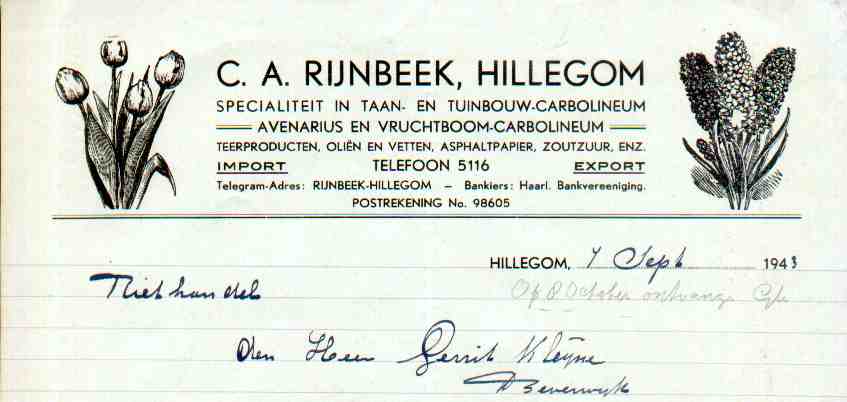 C. A. RIJNBEEK, HILLEGOM
SPECIALITEIT IN TAAN- EN TUINBOUW-CARBOLINEUM
AVENARIUS EN VRUCHTBOOM-CARBOLINEUM
TEERPRODUCTEN, OLIËN EN VETTEN, ASPHALTPAPIER, ZOUTZUUR, ENZ.
IMPORT TELEFOON 5116 EXPORT
Telegram-Adres: RIJNBEEK-HILLEGOM – Bankiers: Haarl. Bankvereeniging.
POSTREKENING No. 98605
HILLEGOM, 7 Sept 1943
Riethandel Op 8 October ontvangen
den Heer Gerrit Kleijne
Beverwijk